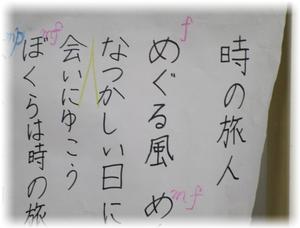 時の旅人
めぐる風 め
なつかしい日に
会いにゆこう
ぼくらは時の旅
f
mf
mf
mp